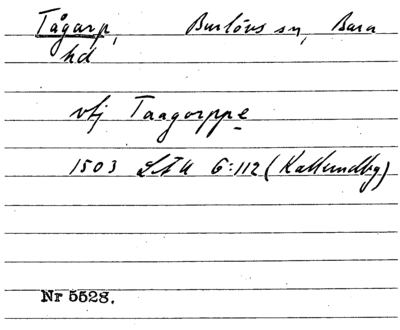 Tågarp, Burlövs sn, Bara
hd
vtj Taagorppe
1503 LÄU 6:112 (Kallundbg)
Nr 5528.